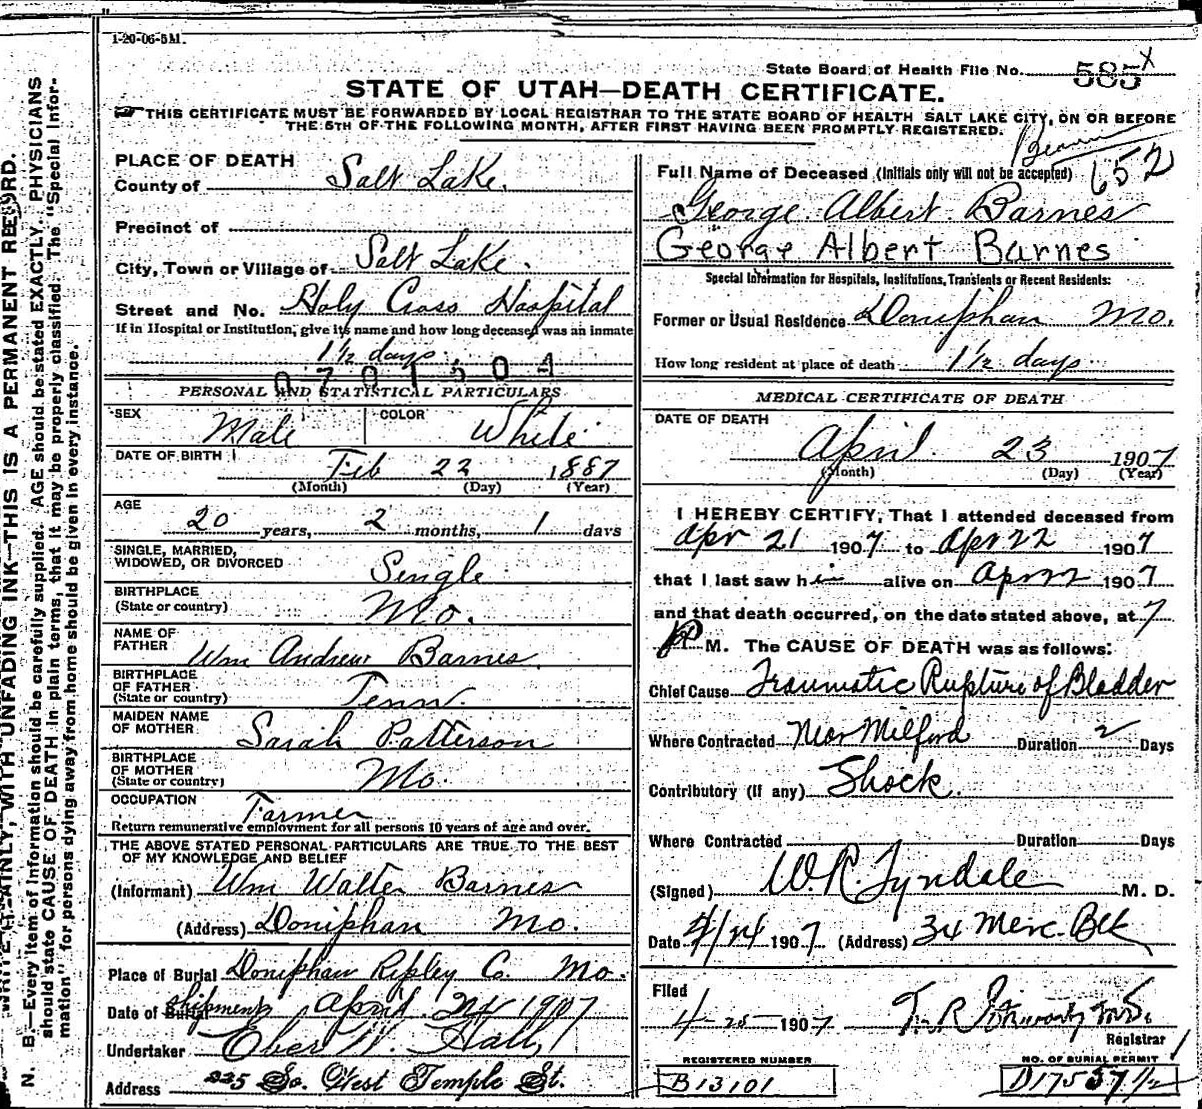 1-20-06-5M.
State Board of Health File No. 585 X
STATE OF UTAH—DEATH CERTIFICATE.
THIS CERTIFICATE MUST BE FORWARDED BY LOCAL REGISTRAR TO THE STATE BOARD OF HEALTH SALT LAKE CITY, ON OR BEFORE
THE 5TH OF THE FOLLOWING MONTH, AFTER FIRST HAVING BEEN PROMPTLY REGISTERED.
PLACE OF DEATH
County of Salt Lake.
Precinct of
City, Town or Village of Salt Lake.
Street and No. Holy Cross Hospital
If in Hospital or Institution, give its name and how long deceased was an inmate
1 1/2 days
0701504
PERSONAL AND STATISTICAL PARTICULARS
SEX Male COLOR White
DATE OF BIRTH Feb 22 1887
(Month) (Day) (Year)
AGE
20 years, 2 months, 1 days
SINGLE, MARRIED,
WIDOWED, OR DIVORCED Single
BIRTHPLACE
(State or country) Mo.
NAME OF
FATHER Wm Andrew Barnes
BIRTHPLACE
OF FATHER
(State or country) Tenn.
MAIDEN NAME
OF MOTHER Sarah Patterson
BIRTHPLACE
OF MOTHER
(State or country) Mo.
OCCUPATION Farmer
Return remunerative employment for all persons 10 years of age and over.
THE ABOVE STATED PERSONAL PARTICULARS ARE TRUE TO THE BEST
OF MY KNOWLEDGE AND BELIEF
(Informant) Wm Walter Barnes
(Address) Doniphan Mo.
Place of Burial Doniphan Ripley Co. Mo.
Date of Burial shipment April 24 1907
Undertaker Eber W. Hall
Address 235 So. West Temple St.
Beaver
652
Full Name of Deceased (Initials only will not be accepted)
George Albert Barnes
George Albert Barnes
Special Information for Hospitals, Institutions, Transients or Recent Residents:
Former or Usual Residence Doniphan Mo.
How long resident at place of death 1 1/2 days
MEDICAL CERTIFICATE OF DEATH
DATE OF DEATH
April 23 1907
(Month) (Day) (Year)
I HEREBY CERTIFY, That I attended deceased from
Apr 21 1907 to Apr 22 1907
that I last saw him alive on Apr 22 1907
and that death occurred, on the date stated above, at 7
M. The CAUSE OF DEATH was as follows:
Chief Cause Traumatic Rupture of Bladder
Where Contracted Near Milford Duration 2 Days
Contributory (If any) Shock.
Where Contracted Duration Days
(Signed) W.R. Tyndale M. D.
Date 4/24 1907 (Address) 34 Merc. Blk
Filed
4-25-1907
Registrar
REGISTERED NUMBER
B13101
NO. OF BURIAL PERMIT
WRITE PLAINLY, WITH UNFADING INK—THIS IS A PERMANENT RECORD.
N. B.—Every item of information should be carefully supplied. AGE should be stated EXACTLY. PHYSICIANS
should state CAUSE OF DEATH in plain terms, that it may be properly classified. The "Special Infor-
mation" for persons dying away from home should be given in every instance.